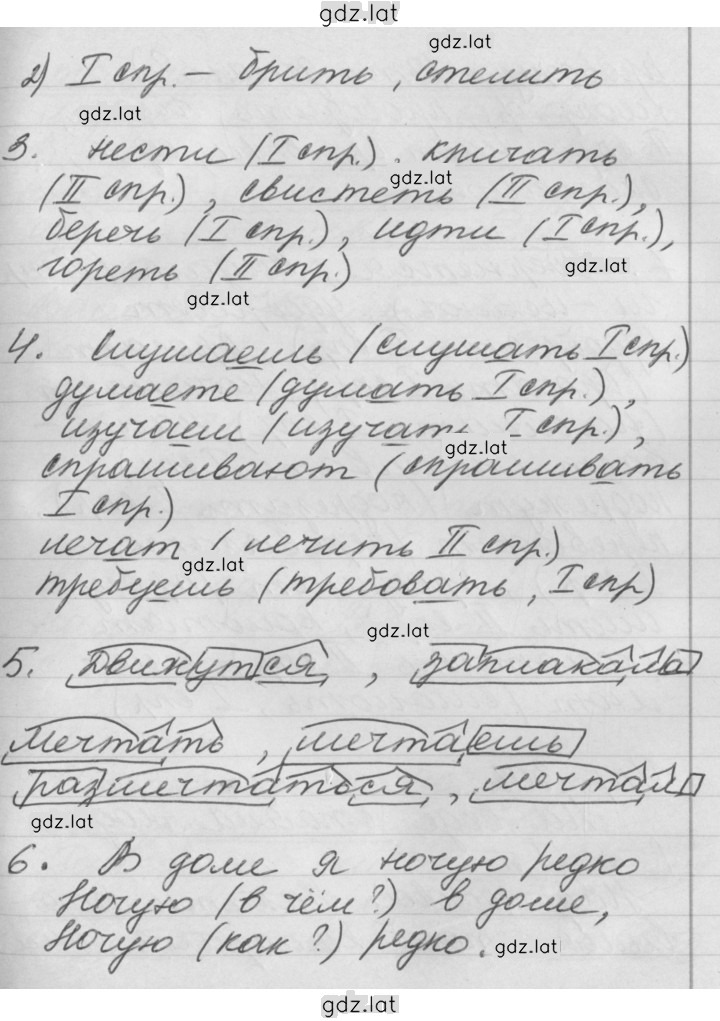 gdz.lat
gdz.lat
2) I спр. – брить, стелить
gdz.lat
3. нести (I спр.). кричать
gdz.lat
(II спр.), свистеть (II спр.),
беречь (I спр.), идти (I спр.),
гореть (II спр.)
gdz.lat
gdz.lat
4. слушаешь (слушать I спр.)
думаете (думать I спр.),
изучаем (изучать I спр.),
gdz.lat
спрашивают (спрашивать
I спр.)
лечат (лечить II спр.)
gdz.lat
требуешь (требовать, I спр)
gdz.lat
5. движутся, заплакала
мечтать, мечтаешь
размечтаться, мечтал
gdz.lat
6. В доме я ночую редко
Ночую (в чём?) в доме,
Ночую (как?) редко.
gdz.lat
gdz.lat